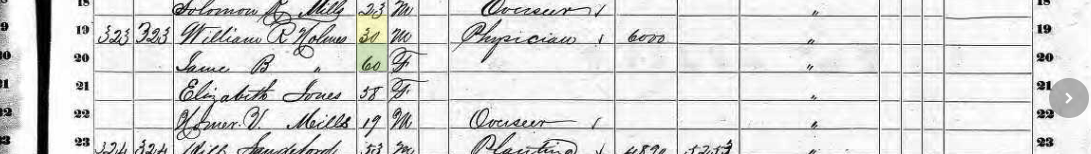 18 Solomon R Mills 23 M Overseer 1 "
19 323 323 William R Holmes 30 M Physician 1 6000 " 19
20 Jane B " 60 F " 20
21 Elizabeth Jones 58 F " 21
22 Homer V. Mills 19 M Overseer 1 " 22
23 324 324 Sandeford 53 M Planting 1 " 23